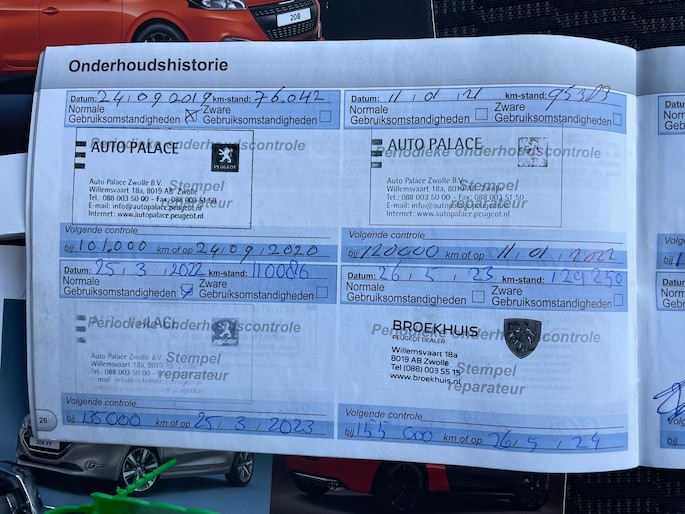 208
Onderhoudshistorie
Datum: 24.09.2019 km-stand: 76.042
Normale Gebruiksomstandigheden
Zware Gebruiksomstandigheden
Periodieke onderhoudscontrole
AUTO PALACE
PEUGEOT
Auto Palace Zwolle B.V.
Willemsvaart 18a, 8019 AB Zwolle
Tel.: 088 003 50 00 - Fax: 088 003 51 50
E-mail: info@autopalace.peugeot.nl
Internet: www.autopalace.peugeot.nl
Stempel
reparateur
Volgende controle
bij 101.000 km of op 24, 09, 2020
Datum: 11, 01, 21 km-stand:
Normale Gebruiksomstandigheden
Zware Gebruiksomstandigheden
Periodieke onderhoudscontrole
AUTO PALACE
Auto Palace Zwolle B.V.
Willemsvaart 18a, 8019 AB Zwolle
Tel.: 088 003 50 00 - Fax: 088 003 51 50
E-mail: info@autopalace.peugeot.nl
Internet: www.autopalace.peugeot.nl
Stempel
reparateur
Volgende controle
bij 120000 km of op 11, 01, 2022
Datum: 25, 3, 2022 km-stand: 110086
Normale Gebruiksomstandigheden
Zware Gebruiksomstandigheden
Periodieke onderhoudscontrole
PEUGEOT
Auto Palace Zwolle B.V.
Willemsvaart 18a, 8019 AB Zwolle
Stempel
reparateur
Volgende controle
bij 135000 km of op 25, 3, 2023
Datum: 26, 5, 23 km-stand: 129250
Normale Gebruiksomstandigheden
Zware Gebruiksomstandigheden
Periodieke onderhoudscontrole
BROEKHUIS
PEUGEOT DEALER
Willemsvaart 18a
8019 AB Zwolle
Tel (088) 003 55 15
www.broekhuis.nl
Stempel
reparateur
Volgende controle
bij 155 000 km of op 26, 5, 24
26